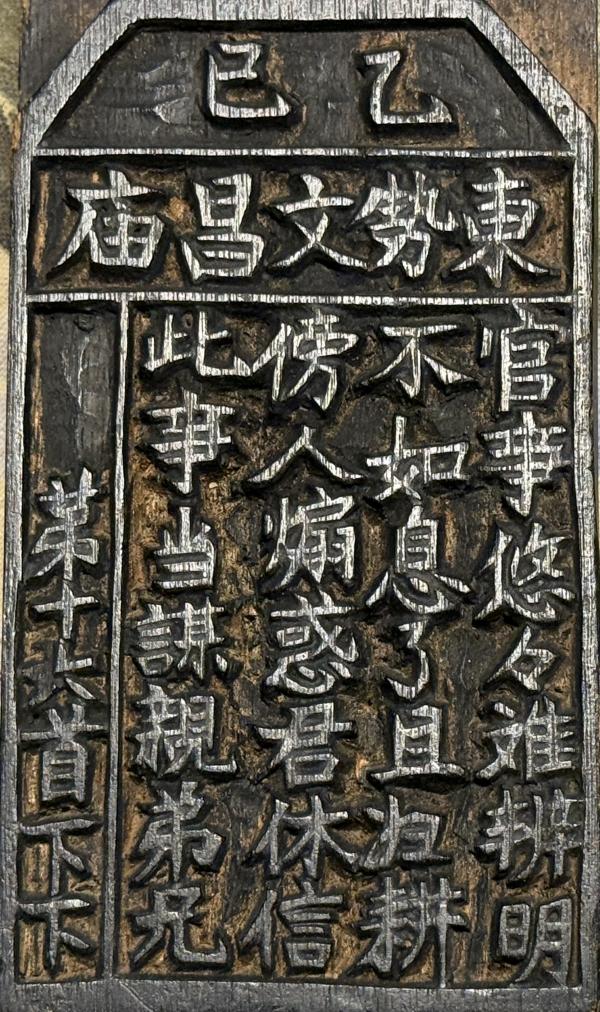 乙巳
東势文昌庙
官事悠々难辨明
不如息了且归耕
傍人煽惑君休信
此事当謀親弟兄
苐十六首下下